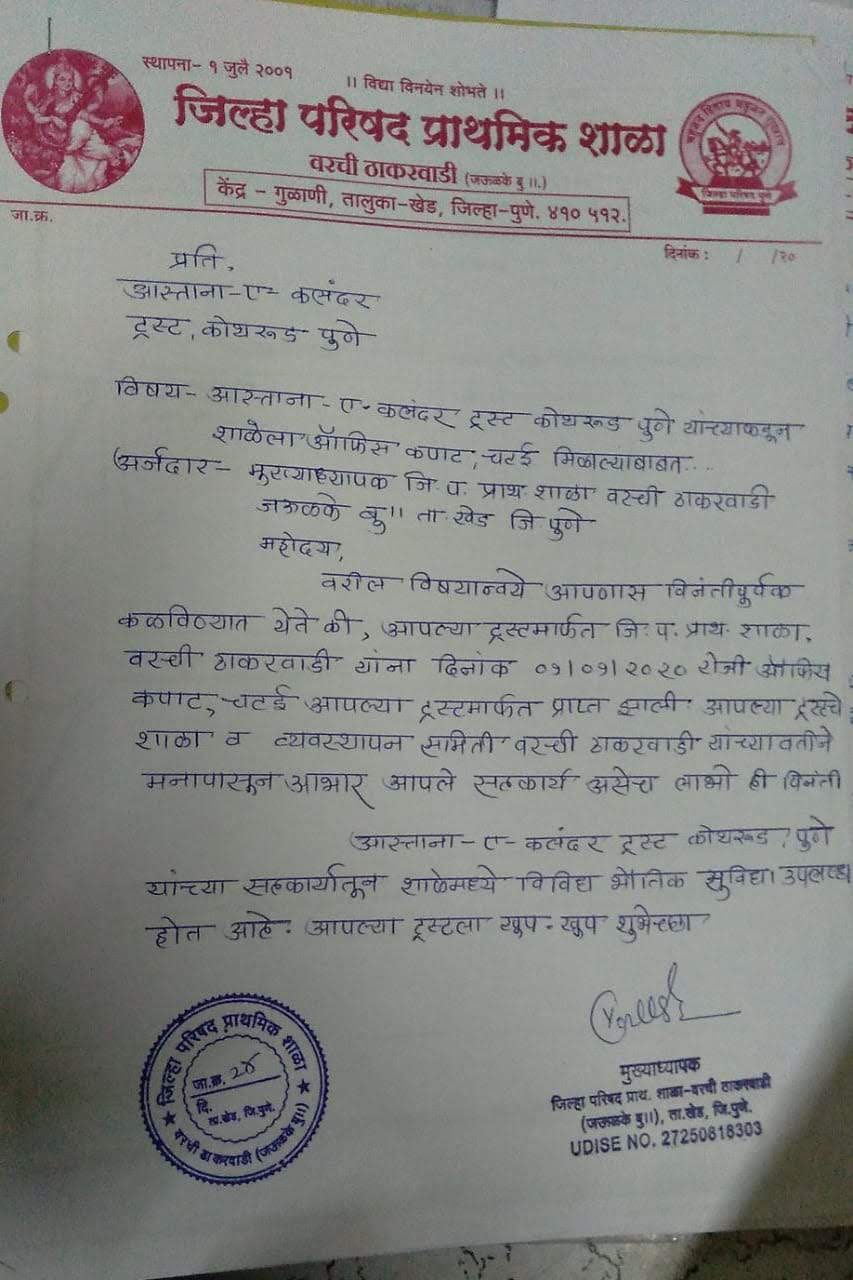 स्थापना- १ जुलै २००१
।। विद्या विनयेन शोभते ।।
जिल्हा परिषद प्राथमिक शाळा
वरची ठाकरवाडी (जऊळके बु ।।.)
केंद्र - गुळाणी, तालुका-खेड, जिल्हा-पुणे. ४१० ५१२.
जिल्हा परिषद पुणे
जा.क्र.
दिनांक : / /२०
प्रति,
आस्ताना-ए-कलंदर
ट्रस्ट, कोथरूड पुणे
विषय- आस्ताना-ए-कलंदर ट्रस्ट कोथरूड पुणे यांच्याकडून
शाळेला ऑफिस कपाट, चटई मिळाल्याबाबत...
अर्जदार- मुख्याध्यापक जि.प. प्राथ. शाळा वरची ठाकरवाडी
जऊळके बु॥ ता. खेड जि. पुणे
महोदय,
वरील विषयान्वये आपणास विनंतीपुर्वक
कळविण्यात येते की, आपल्या ट्रस्टमार्फत जि.प. प्राथ. शाळा.
वरची ठाकरवाडी यांना दिनांक ०१/०१/२०२० रोजी ऑफिस
कपाट, चटई आपल्या ट्रस्टमार्फत प्राप्त झाली. आपल्या ट्रस्टचे
शाळा व व्यवस्थापन समिती वरची ठाकरवाडी यांच्यावतीने
मनापासून आभार आपले सहकार्य असेच लाभो ही विनंती
आस्ताना-ए-कलंदर ट्रस्ट कोथरूड, पुणे
यांच्या सहकार्यातून शाळेमध्ये विविध भौतिक सुविधा उपलब्ध
होत आहे. आपल्या ट्रस्टला खुप-खुप शुभेच्छा
मुख्याध्यापक
जिल्हा परिषद प्राथ. शाळा-वरची ठाकरवाडी
(जऊळके बु॥), ता.खेड, जि.पुणे.
UDISE NO. 27250818303
जिल्हा परिषद प्राथमिक शाळा
जा.क्र. २४
दि.
ता.खेड, जि.पुणे.
वरची ठाकरवाडी (जऊळके बु॥)